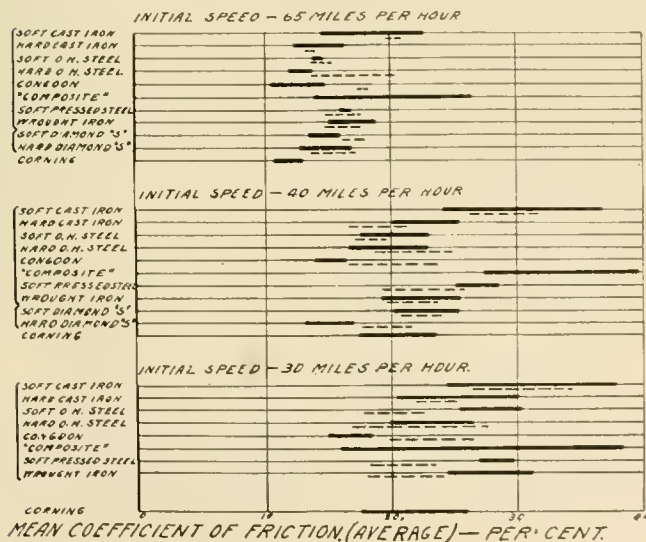 INITIAL SPEED - 65 MILES PER HOUR
SOFT CAST IRON
HARD CAST IRON
SOFT O.H. STEEL
HARD O.H. STEEL
CONGDON
"COMPOSITE"
SOFT PRESSED STEEL
WROUGHT IRON
SOFT DIAMOND "S"
HARD DIAMOND "S"
CORNING
INITIAL SPEED - 40 MILES PER HOUR
SOFT CAST IRON
HARD CAST IRON
SOFT O.H. STEEL
HARD O.H. STEEL
CONGDON
"COMPOSITE"
SOFT PRESSED STEEL
WROUGHT IRON
SOFT DIAMOND "S"
HARD DIAMOND "S"
CORNING
INITIAL SPEED - 30 MILES PER HOUR.
SOFT CAST IRON
HARD CAST IRON
SOFT O.H. STEEL
HARD O.H. STEEL
CONGDON
"COMPOSITE"
SOFT PRESSED STEEL
WROUGHT IRON
CORNING
0 10 20 30 40
MEAN COEFFICIENT OF FRICTION, (AVERAGE) - PER CENT.